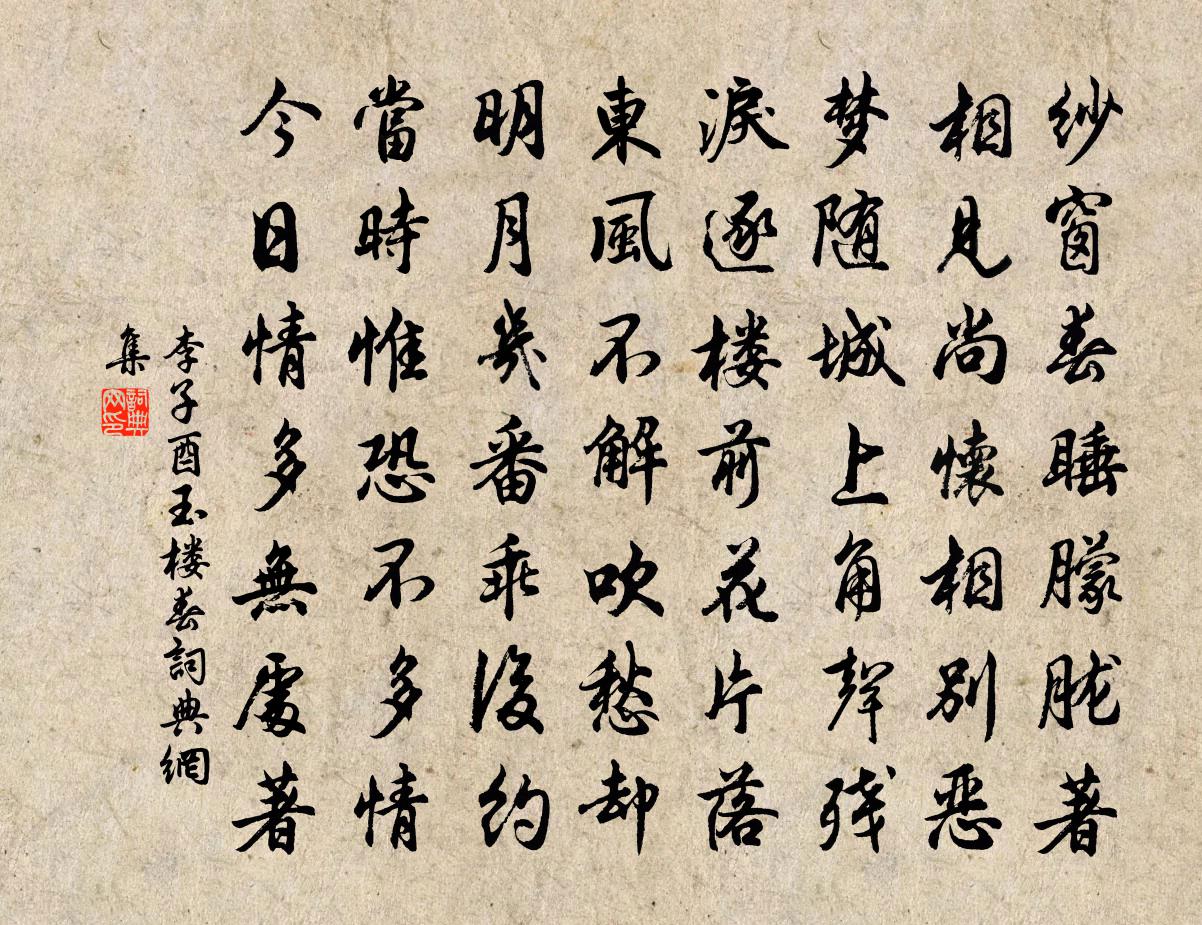 紗窗春睡朦朧著
相見尚懷相別惡
梦随城上角聲残
淚逐楼前花片落
東風不解吹愁却
明月幾番乖後約
當時惟恐不多情
今日情多無處著
李子酉玉楼春詞典網
集
詞典
网印